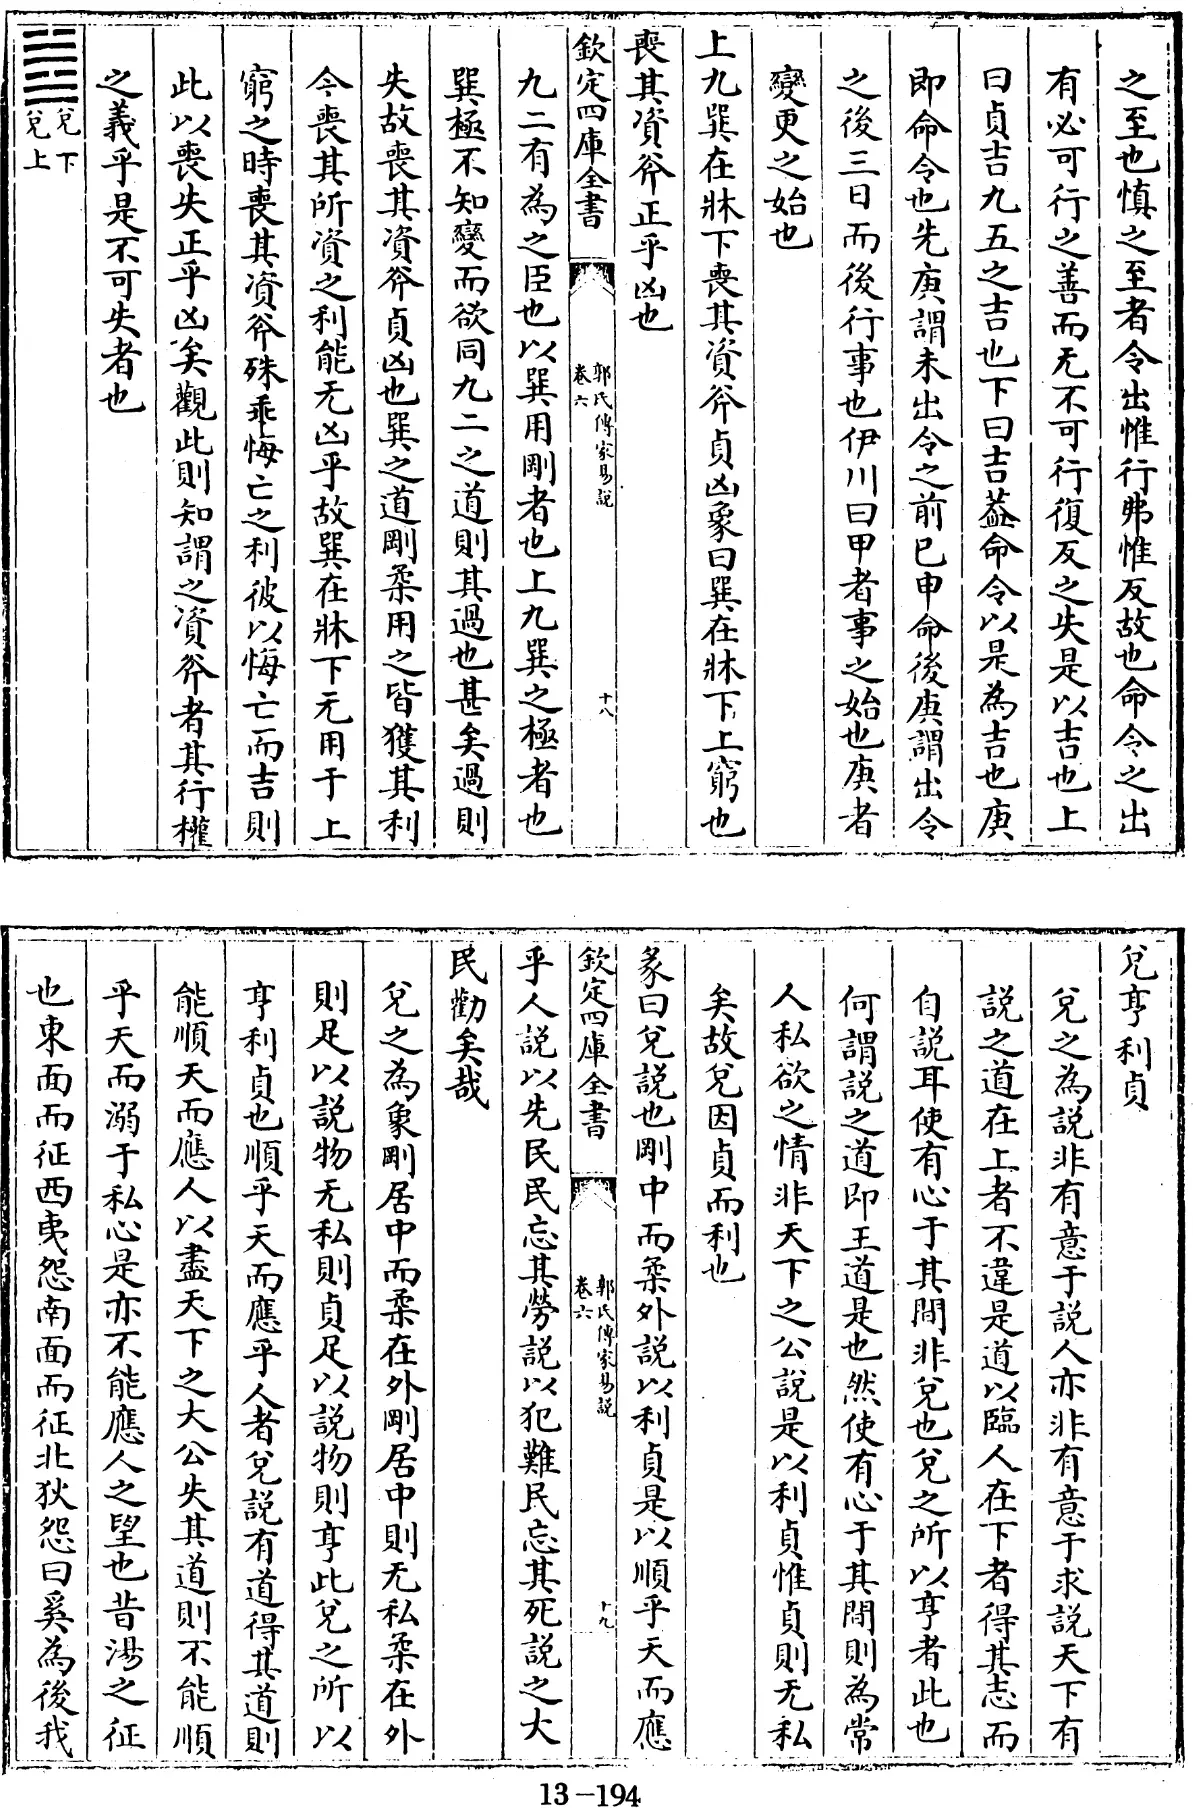 之至也慎之至者令出惟行弗惟反故也命令之出
有必可行之善而无不可行復反之失是以吉也上
曰貞吉九五之吉也下曰吉葢命令以是為吉也庚
即命令也先庚謂未出令之前已申命後庚謂出令
之後三日而後行事也伊川曰甲者事之始也庚者
變更之始也
上九巽在牀下喪其資斧貞凶象曰巽在牀下上窮也
喪其資斧正乎凶也
欽定四庫全書
郭氏傳家易說
卷六
十八
九二有為之臣也以巽用剛者也上九巽之極者也
巽極不知變而欲同九二之道則其過也甚矣過則
失故喪其資斧貞凶也巽之道剛柔用之皆獲其利
今喪其所資之利能无凶乎故巽在牀下无用于上
窮之時喪其資斧殊乖悔亡之利彼以悔亡而吉則
此以喪失正乎凶矣觀此則知謂之資斧者其行權
之義乎是不可失者也
䷹兌下
兌上
兌亨利貞
兌之為說非有意于說人亦非有意于求說天下有
說之道在上者不違是道以臨人在下者得其志而
自說耳使有心于其間非兌也兌之所以亨者此也
何謂說之道即王道是也然使有心于其間則為常
人私欲之情非天下之公說是以利貞惟貞則无私
矣故兌因貞而利也
彖曰兌說也剛中而柔外說以利貞是以順乎天而應
欽定四庫全書
郭氏傳家易說
卷六
十九
乎人說以先民民忘其勞說以犯難民忘其死說之大
民勸矣哉
兌之為象剛居中而柔在外剛居中則无私柔在外
則足以說物无私則貞足以說物則亨此兌之所以
亨利貞也順乎天而應乎人者兌說有道得其道則
能順天而應人以盡天下之大公失其道則不能順
乎天而溺于私心是亦不能應人之望也昔湯之征
也東面而征西夷怨南面而征北狄怨曰奚為後我
13-194